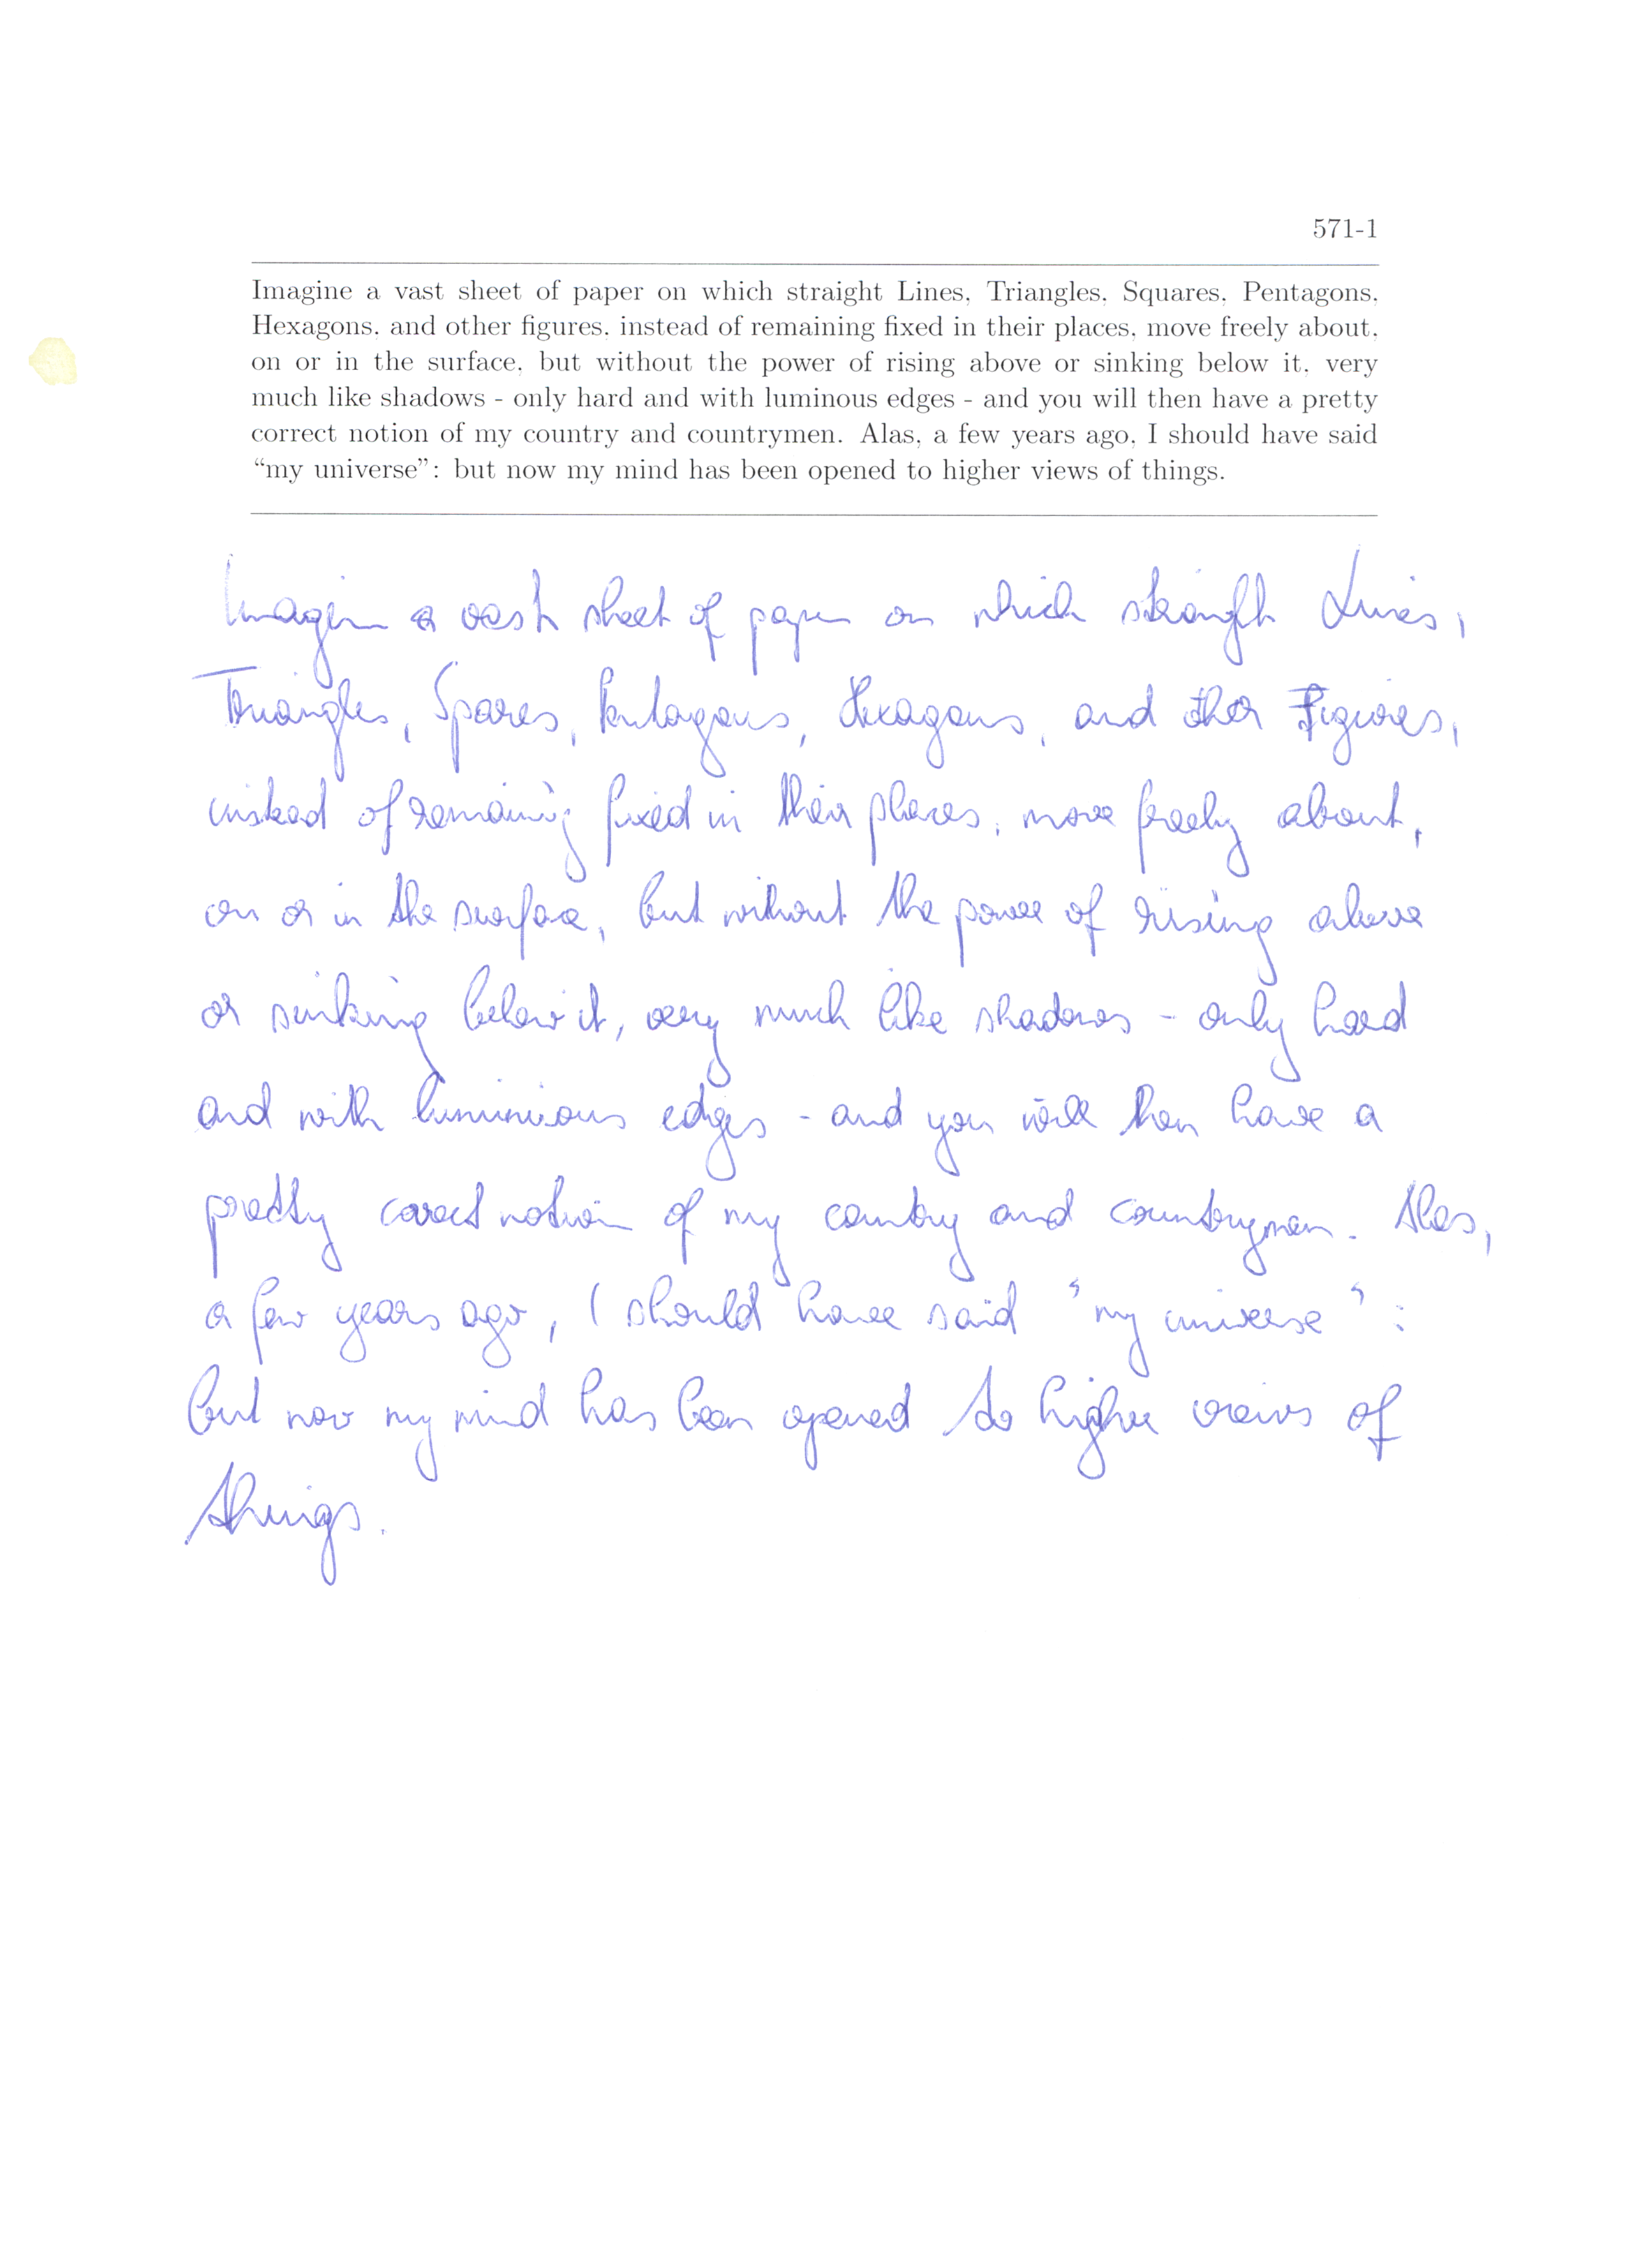 571-1
Imagine a vast sheet of paper on which straight Lines, Triangles, Squares, Pentagons,
Hexagons, and other figures, instead of remaining fixed in their places, move freely about,
on or in the surface, but without the power of rising above or sinking below it, very
much like shadows - only hard and with luminous edges - and you will then have a pretty
correct notion of my country and countrymen. Alas, a few years ago, I should have said
“my universe”: but now my mind has been opened to higher views of things.
Imagin a vast sheet of paper on which straingh Lines,
Triangles, Spares, Pentagons, Hexagons, and other Figures,
instead of remaining fixed in their places, move freely about,
on or in the surface, but without the power of rising above
or sinking below it, very much like shadows - only hard
and with luminious edges - and you will then have a
pretty corect notion of my country and countrymen. Alas,
a few years ago, I should have said "my universe":
but now my mind has been opened to higher views of
things.